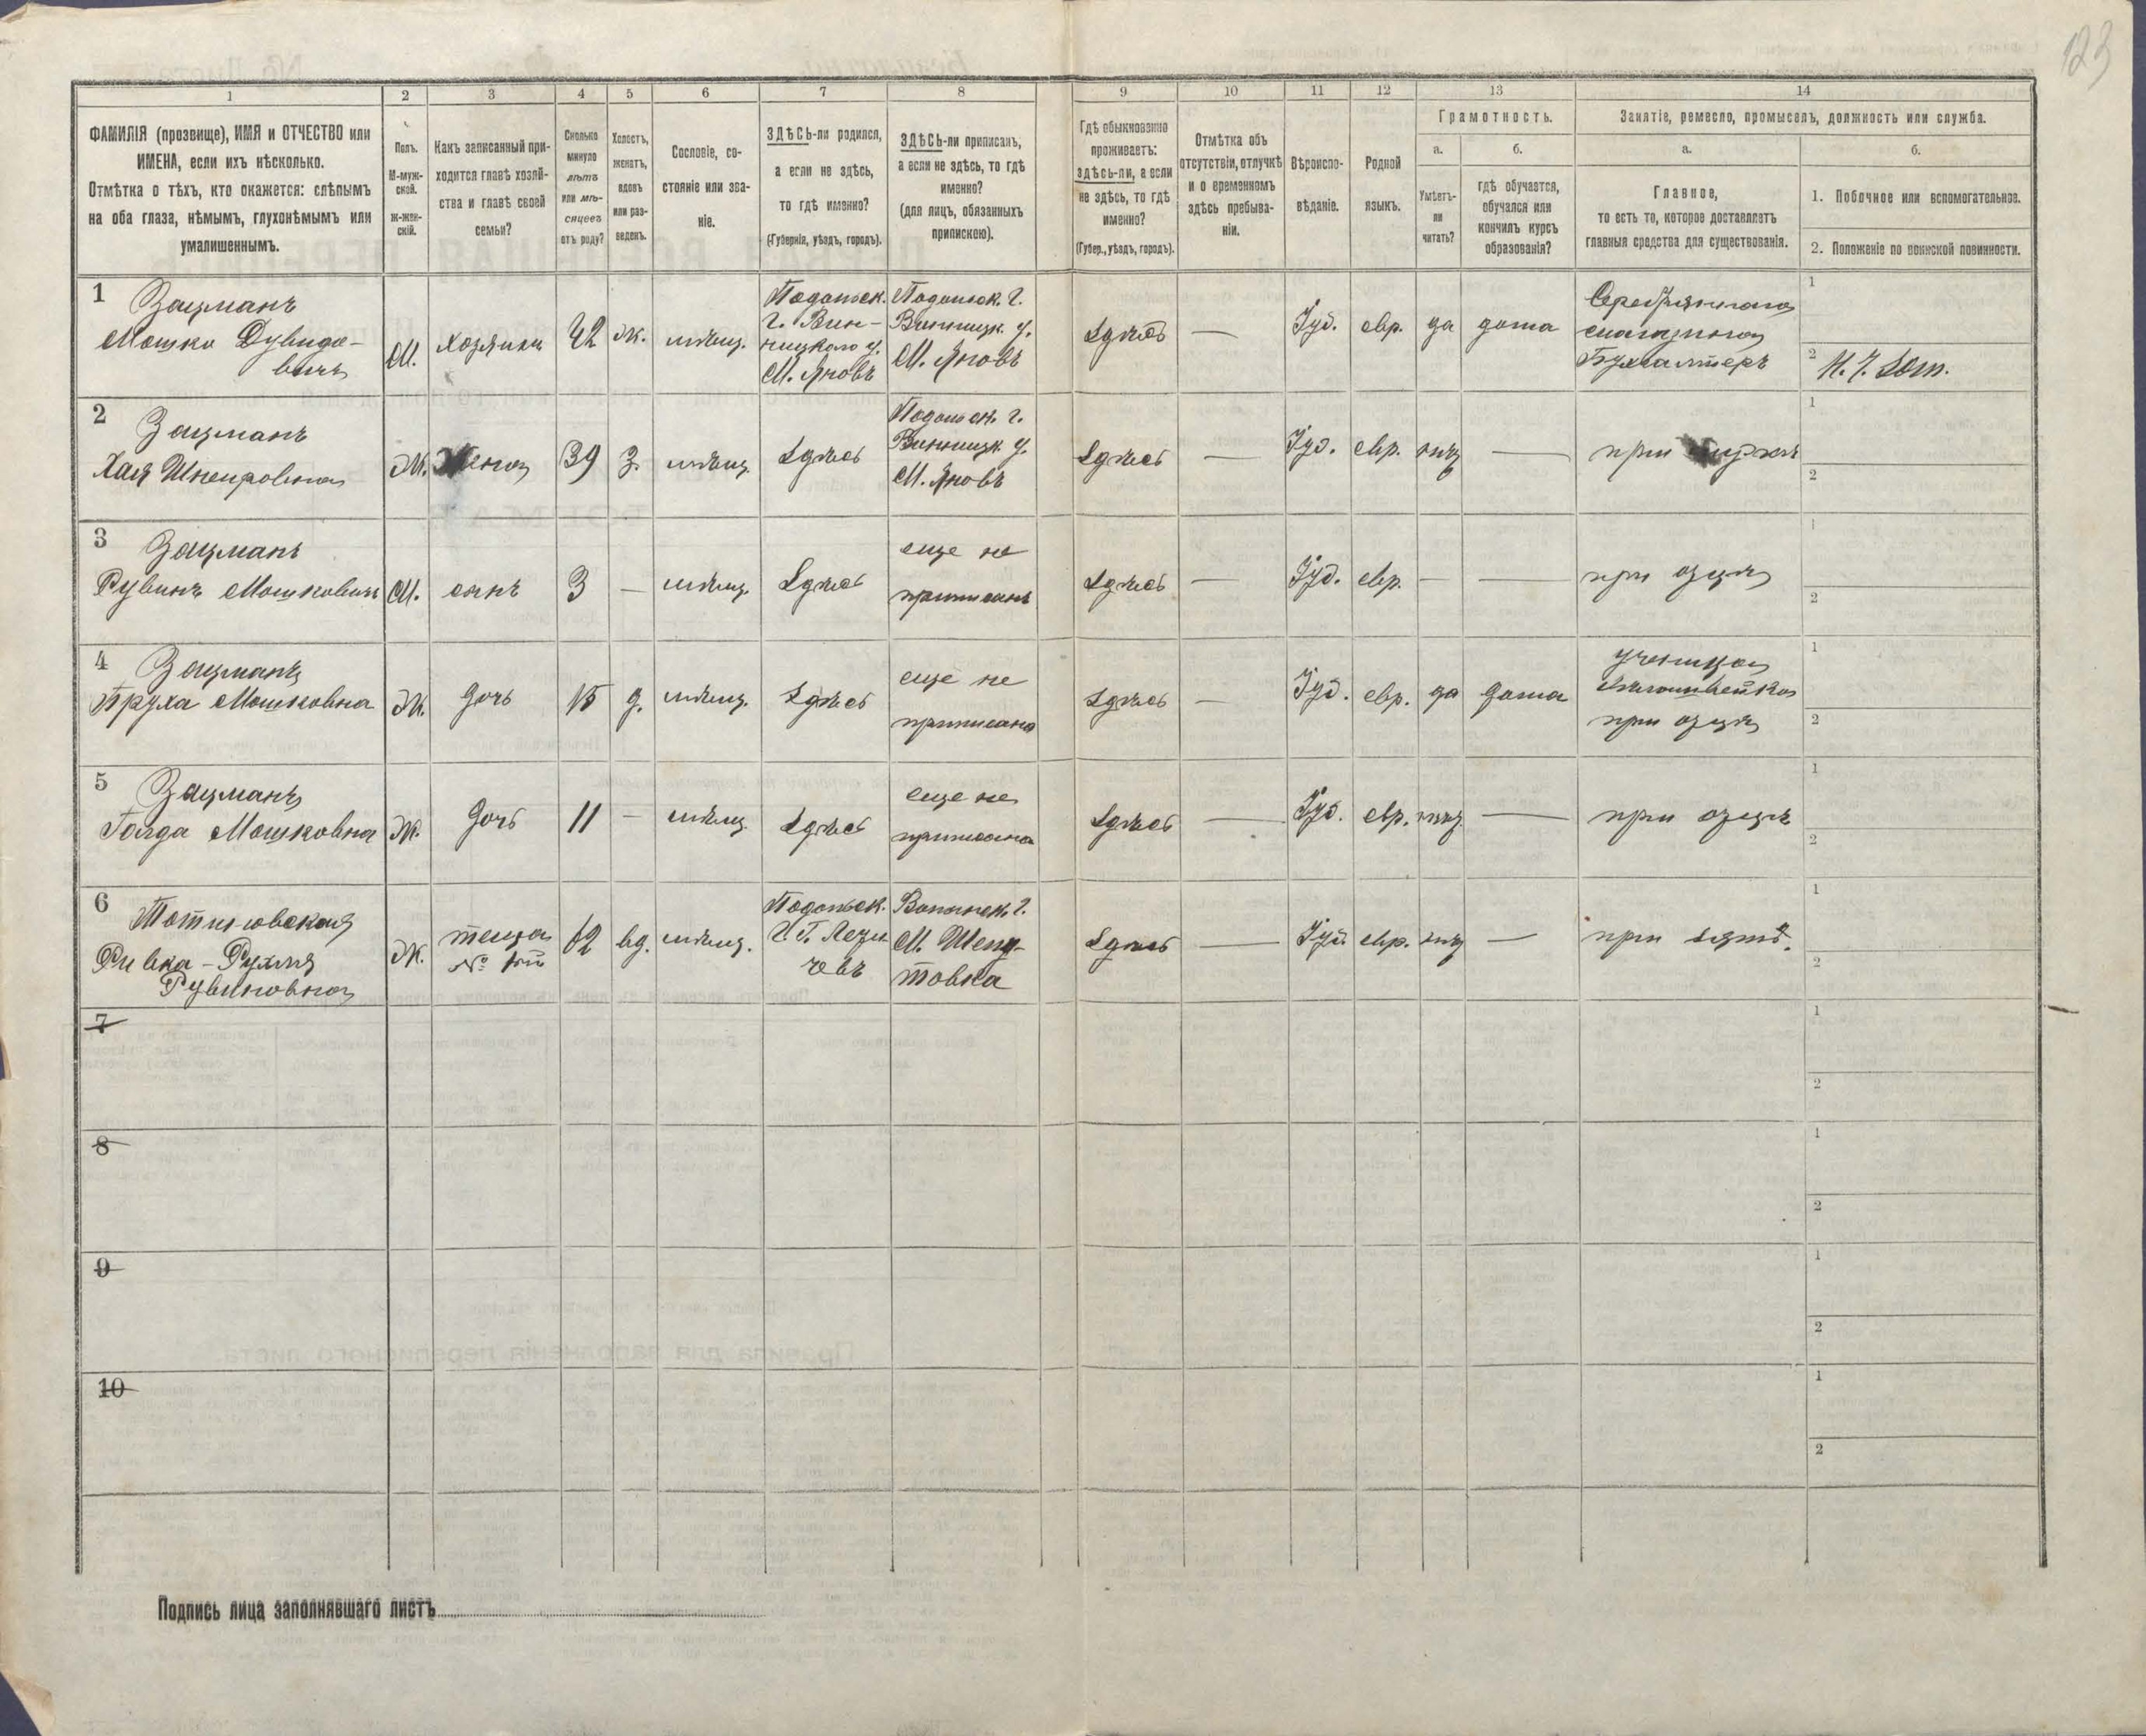 123
1
2
3
4
5
6
7
8
9
10
11
12
13
14
ФАМИЛІЯ (прозвище), ИМЯ и ОТЧЕСТВО или
ИМЕНА, если ихъ нѣсколько.
Отмѣтка о тѣхъ, кто окажется: слѣпымъ
на оба глаза, нѣмымъ, глухонѣмымъ или
умалишеннымъ.
Полъ.
М-муж-
ской.
Ж-жен-
скій.
Какъ записанный при-
ходится главѣ хозяй-
ства и главѣ своей
семьи?
Сколько
минуло
лѣтъ
или мѣ-
сяцевъ
отъ роду?
Холостъ,
женатъ,
вдовъ
или раз-
веденъ.
Сословіе, со-
стояніе или зва-
ніе.
ЗДѢСЬ-ли родился,
а если не здѣсь,
то гдѣ именно?
(Губернія, уѣздъ, городъ).
ЗДѢСЬ-ли приписанъ,
а если не здѣсь, то гдѣ
именно?
(для лицъ, обязанныхъ
припискею).
Гдѣ обыкновенно
проживаетъ:
здѣсь-ли, а если
не здѣсь, то гдѣ
именно?
(Губер., уѣздъ, городъ).
Отмѣтка объ
отсутствіи, отлучкѣ
и о временномъ
здѣсь пребыва-
ніи.
Вѣроиспо-
вѣданіе.
Родной
языкъ.
Грамотность.
а.
Умѣетъ-
ли
читать?
б.
гдѣ обучается,
обучался или
кончилъ курсъ
образованія?
Занятіе, ремесло, промыселъ, должность или служба.
а.
Главное,
то есть то, которое доставляетъ
главныя средства для существованія.
б.
1. Побочное или вспомогательное.
2. Положеніе по воинской повинности.
1
Зацманъ
Мошко Дувидо-
вичъ
М.
Хозяинъ
42
ж.
мѣщ.
Подольск.
г. Вин-
ницкаго у.
М. Яновъ
Подольск. г.
Винницк. у.
М. Яновъ
Здѣсь
—
Іуд.
евр.
да
дома
магазина
Бухгалтеръ
1
2
2
Зацманъ
Хая Шнеировна
Ж.
Жена
39
З.
мѣщ.
Здѣсь
Подольск. г.
Винницк. у.
М. Яновъ
Здѣсь
—
Іуд.
евр.
нѣт
—
при мужѣ
1
2
3
Зацманъ
Рувинъ Мошковичъ
М.
сынъ
3
—
мѣщ.
Здѣсь
еще не
приписанъ
Здѣсь
—
Іуд.
евр.
—
—
при отцѣ
1
2
4
Зацманъ
Бруха Мошковна
Ж.
Дочь
15
д.
мѣщ.
Здѣсь
еще не
приписана
Здѣсь
—
Іуд.
евр.
да
дома
ученица
при отцѣ
1
2
5
Зацманъ
Голда Мошковна
Ж.
Дочь
11
—
мѣщ.
Здѣсь
еще не
приписана
Здѣсь
—
Іуд.
евр.
нѣт
—
при отцѣ
1
2
6
Ривка-Рухля
Рувиновна
Ж.
теща
62
вд.
мѣщ.
Подольск.
Волынск. г.
М. Шепе-
товка
Здѣсь
—
Іуд.
евр.
нѣт
—
при зятѣ.
1
2
7
1
2
8
1
2
9
1
2
10
1
2
Подпись лица заполнявшаго листъ